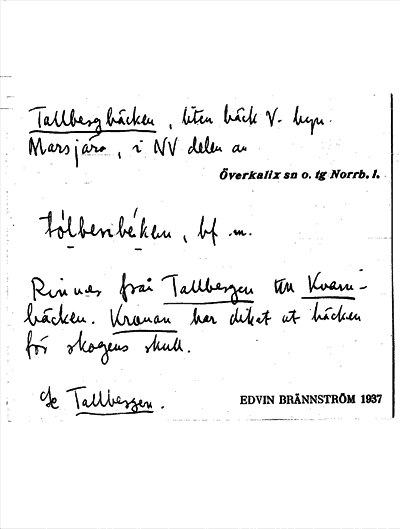 Tallbergbäcken, liten bäck V. byn
Marsjärv, i NV delen av
Överkalix sn o. tg Norrb. l.
bf .m.
Rinner från Tallbergen till Kvarn-
bäcken. Kronan har dikat ut bäcken
för skogens skull.
Se Tallbergen.
EDVIN BRÄNNSTRÖM 1937